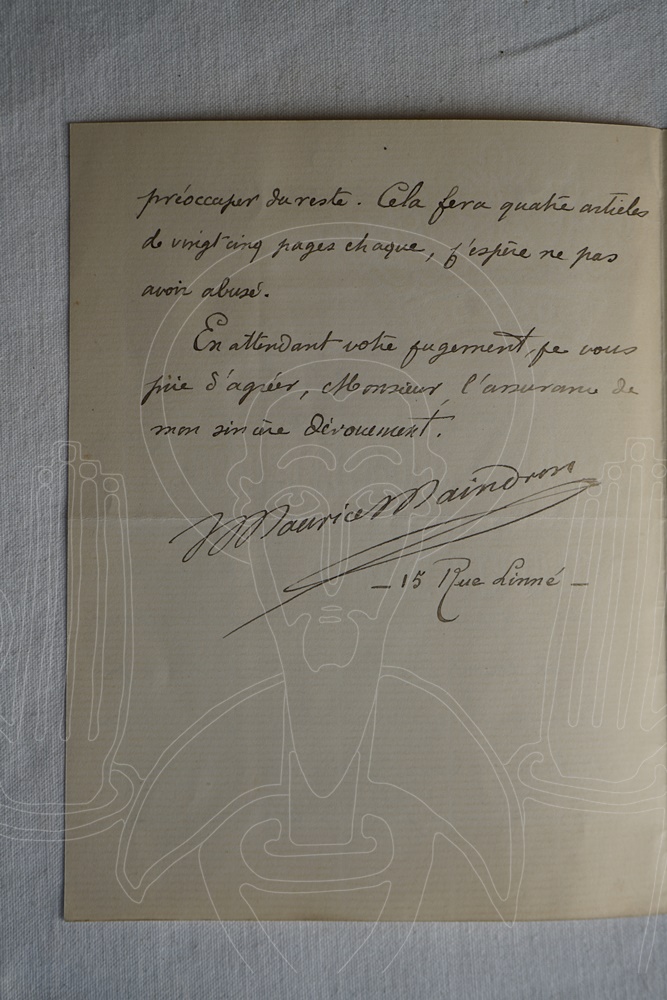 préoccuper du reste. Cela fera quatre articles
de vingt cinq pages chaque, j'espère ne pas
avoir abusé.
En attendant votre jugement, je vous
prie d'agréer, Monsieur l'assurance de
mon sincère dévouement.
Maurice Maindron
— 15 Rue Linné —